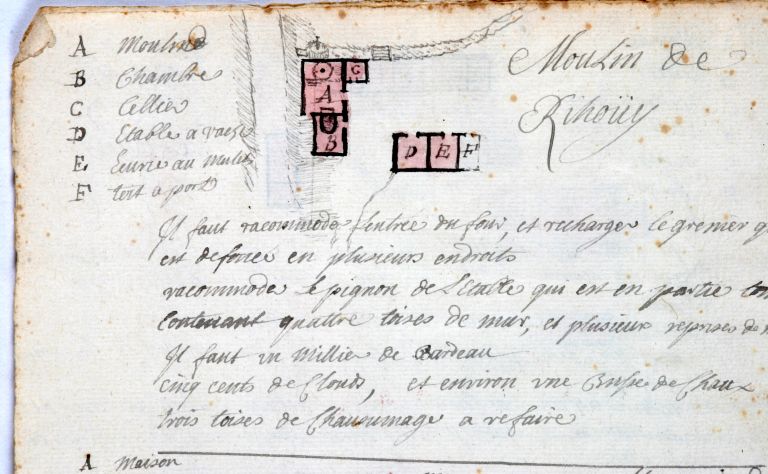 A Moulin
B Chambre
C Cellier
D Etable a vache
E Ecurie au mulet
F toit a porc
Moulin de
Rihoüy
C
A
B
D E F
Il faut racommode lentrée du four, et recharger le grenier q
est deforcé en plusieurs endroits
racommode le pignon de l'Etable qui est en partie
contenant quattre toises de mur, et plusieurs reprises de
Il faut un Millié de Bardeau
cinq cents de Clouds, et environ une de Chaux
trois toises de Chaumage a refaire
A Maison